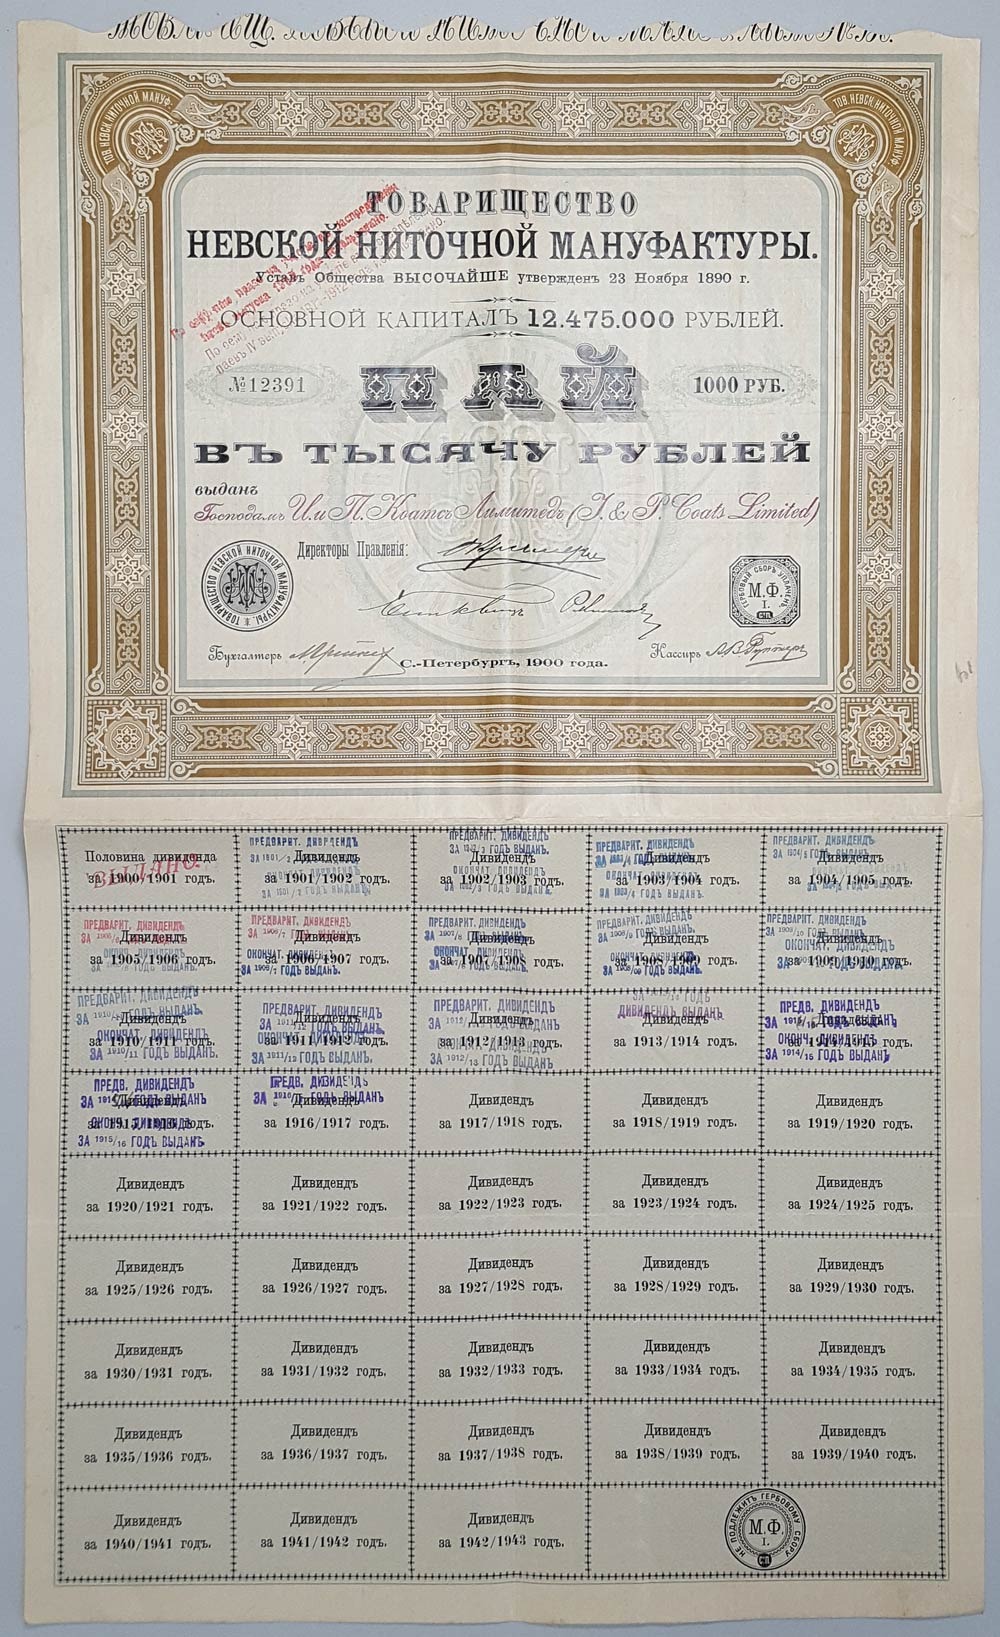 ТОВ. НЕВСК. НИТОЧНОЙ МАНУФ.
ТОВ. НЕВСК. НИТОЧНОЙ МАНУФ.
ТОВАРИЩЕСТВО
НЕВСКОЙ НИТОЧНОЙ МАНУФАКТУРЫ.
Уставъ Общества ВЫСОЧАЙШЕ утвержденъ 23 Ноября 1890 г.
ОСНОВНОЙ КАПИТАЛЪ 12.475.000 РУБЛЕЙ.
№ 12391
ПАЙ
1000 РУБ.
ВЪ ТЫСЯЧУ РУБЛЕЙ
выданъ
Господамъ И. и П. Коатсъ Лимитедъ (J. & P. Coats Limited)
Директоры Правленія:
ТОВАРИЩЕСТВО НЕВСКОЙ НИТОЧНОЙ МАНУФАКТУРЫ.
ГЕРБОВЫЙ СБОРЪ УПЛАЧЕНЪ
М.Ф.
I.
СП.
Бухгалтеръ
С.-Петербургъ, 1900 года.
Кассиръ
Половина дивиденда за 1900/1901 годъ.
ВЫДАНО.
Дивидендъ за 1901/1902 годъ.
ПРЕДВАРИТ. ДИВИДЕНДЪ ЗА 1901/2 ГОДЪ ВЫДАНЪ.
Дивидендъ за 1902/1903 годъ.
ПРЕДВАРИТ. ДИВИДЕНДЪ ЗА 1902/3 ГОДЪ ВЫДАНЪ.
ОКОНЧАТ. ДИВИДЕНДЪ ЗА 1902/3 ГОДЪ ВЫДАНЪ.
Дивидендъ за 1903/1904 годъ.
ПРЕДВАРИТ. ДИВИДЕНДЪ
Дивидендъ за 1904/1905 годъ.
ПРЕДВАРИТ. ДИВИДЕНДЪ
Дивидендъ за 1905/1906 годъ.
ПРЕДВАРИТ. ДИВИДЕНДЪ
Дивидендъ за 1906/1907 годъ.
ПРЕДВАРИТ. ДИВИДЕНДЪ ЗА 1906/7 ГОДЪ ВЫДАНЪ.
ОКОНЧАТ. ДИВИДЕНДЪ ЗА 1906/7 ГОДЪ ВЫДАНЪ.
Дивидендъ за 1907/1908 годъ.
ПРЕДВАРИТ. ДИВИДЕНДЪ ЗА 1907/8 ГОДЪ ВЫДАНЪ.
ОКОНЧАТ. ДИВИДЕНДЪ ЗА 1907/8 ГОДЪ ВЫДАНЪ.
Дивидендъ за 1908/1909 годъ.
ПРЕДВАРИТ. ДИВИДЕНДЪ ЗА 1908/9 ГОДЪ ВЫДАНЪ.
Дивидендъ за 1909/1910 годъ.
ПРЕДВАРИТ. ДИВИДЕНДЪ ЗА 1909/10 ГОДЪ ВЫДАНЪ.
Дивидендъ за 1910/1911 годъ.
ПРЕДВАРИТ. ДИВИДЕНДЪ ЗА 1910/11 ГОДЪ ВЫДАНЪ.
ОКОНЧАТ. ДИВИДЕНДЪ ЗА 1910/11 ГОДЪ ВЫДАНЪ.
Дивидендъ за 1911/1912 годъ.
ПРЕДВАРИТ. ДИВИДЕНДЪ ЗА 1911/12 ГОДЪ ВЫДАНЪ.
ОКОНЧАТ. ДИВИДЕНДЪ ЗА 1911/12 ГОДЪ ВЫДАНЪ.
Дивидендъ за 1912/1913 годъ.
ПРЕДВАРИТ. ДИВИДЕНДЪ ЗА 1912/13 ГОДЪ ВЫДАНЪ.
ОКОНЧАТ. ДИВИДЕНДЪ ЗА 1912/13 ГОДЪ ВЫДАНЪ.
Дивидендъ за 1913/1914 годъ.
ДИВИДЕНДЪ ВЫДАНЪ.
Дивидендъ за 1914/1915 годъ.
ПРЕДВ. ДИВИДЕНДЪ ЗА 1914/15 ГОДЪ ВЫДАНЪ
ОКОНЧ. ДИВИДЕНДЪ ЗА 1914/15 ГОДЪ ВЫДАНЪ,
Дивидендъ за 1915/1916 годъ.
ПРЕДВ. ДИВИДЕНДЪ
ОКОНЧ. ДИВИДЕНДЪ ЗА 1915/16 ГОДЪ ВЫДАНЪ.
Дивидендъ за 1916/1917 годъ.
ПРЕДВ. ДИВИДЕНДЪ
Дивидендъ за 1917/1918 годъ.
Дивидендъ за 1918/1919 годъ.
Дивидендъ за 1919/1920 годъ.
Дивидендъ за 1920/1921 годъ.
Дивидендъ за 1921/1922 годъ.
Дивидендъ за 1922/1923 годъ.
Дивидендъ за 1923/1924 годъ.
Дивидендъ за 1924/1925 годъ.
Дивидендъ за 1925/1926 годъ.
Дивидендъ за 1926/1927 годъ.
Дивидендъ за 1927/1928 годъ.
Дивидендъ за 1928/1929 годъ.
Дивидендъ за 1929/1930 годъ.
Дивидендъ за 1930/1931 годъ.
Дивидендъ за 1931/1932 годъ.
Дивидендъ за 1932/1933 годъ.
Дивидендъ за 1933/1934 годъ.
Дивидендъ за 1934/1935 годъ.
Дивидендъ за 1935/1936 годъ.
Дивидендъ за 1936/1937 годъ.
Дивидендъ за 1937/1938 годъ.
Дивидендъ за 1938/1939 годъ.
Дивидендъ за 1939/1940 годъ.
Дивидендъ за 1940/1941 годъ.
Дивидендъ за 1941/1942 годъ.
Дивидендъ за 1942/1943 годъ.
НЕ ПОДЛЕЖИТЪ ГЕРБОВОМУ СБОРУ
М.Ф.
I.
СП.